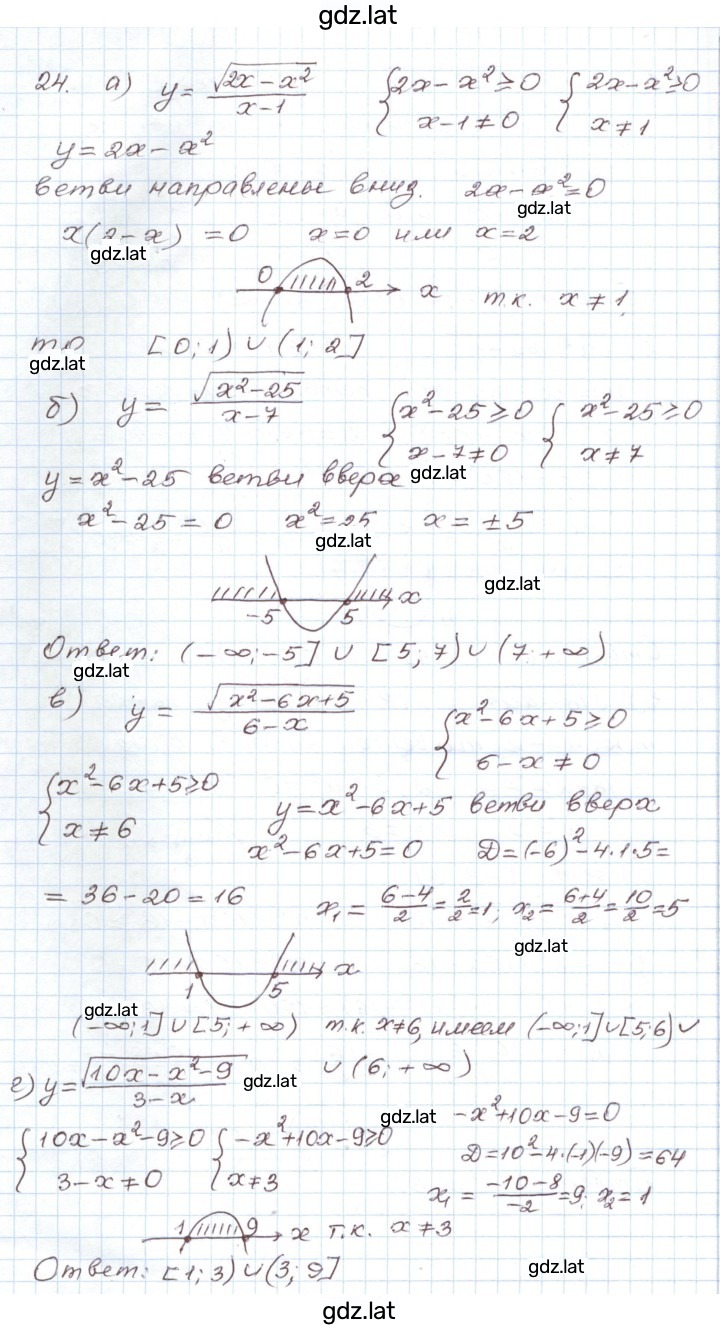 gdz.lat
24. а) y = √(2x - x²) / (x - 1) { 2x - x² ≥ 0 { 2x - x² ≥ 0
x - 1 ≠ 0 x ≠ 1
y = 2x - x²
ветви направлены вниз. 2x - x² = 0
gdz.lat
x(2 - x) = 0 x = 0 или x = 2
gdz.lat
0 2 x т.к. x ≠ 1,
то [0; 1) ∪ (1; 2]
gdz.lat
б) y = √(x² - 25) / (x - 7) { x² - 25 ≥ 0 { x² - 25 ≥ 0
x - 7 ≠ 0 x ≠ 7
y = x² - 25 ветви вверх gdz.lat
x² - 25 = 0 x² = 25 x = ±5
gdz.lat
gdz.lat
-5 5 x
Ответ: (-∞; -5] ∪ [5; 7) ∪ (7 + ∞)
gdz.lat
в) y = √(x² - 6x + 5) / (6 - x) { x² - 6x + 5 ≥ 0
6 - x ≠ 0
{ x² - 6x + 5 ≥ 0
x ≠ 6 y = x² - 6x + 5 ветви вверх
x² - 6x + 5 = 0 D = (-6)² - 4·1·5 =
= 36 - 20 = 16 x₁ = (6 - 4)/2 = 2/2 = 1; x₂ = (6 + 4)/2 = 10/2 = 5
gdz.lat
1 5 x
gdz.lat
(-∞; 1] ∪ [5; +∞) т.к. x ≠ 6, имеем (-∞; 1] ∪ [5; 6) ∪
∪ (6; +∞)
г) y = √(10x - x² - 9) / (3 - x) gdz.lat
gdz.lat -x² + 10x - 9 = 0
{ 10x - x² - 9 ≥ 0 { -x² + 10x - 9 ≥ 0
3 - x ≠ 0 x ≠ 3
D = 10² - 4·(-1)(-9) = 64
x₁ = (-10 - 8)/(-2) = 9; x₂ = 1
1 9 x т.к. x ≠ 3
Ответ: [1; 3) ∪ (3; 9]
gdz.lat
gdz.lat